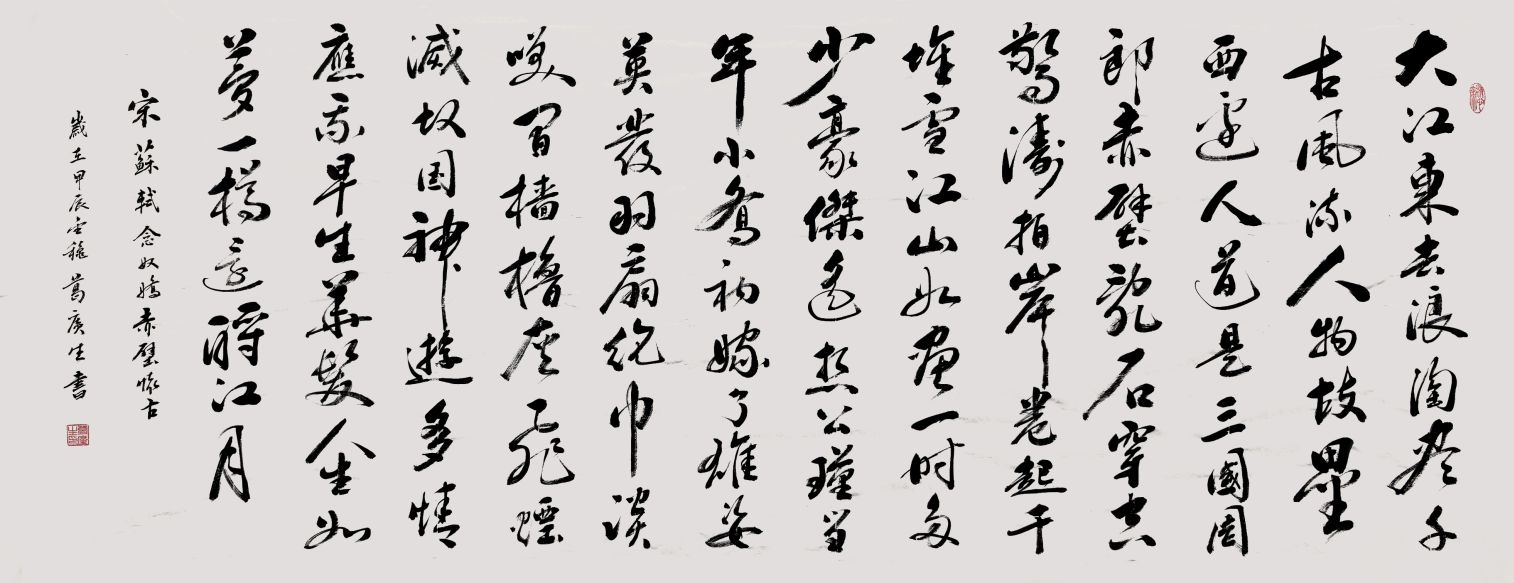 大江東去浪淘盡千
古風流人物故壘
西邊人道是三國周
郎赤壁亂石穿空
驚濤拍岸卷起千
堆雪江山如畫一時多
少豪傑遙想公瑾當
年小喬初嫁了雄姿
英發羽扇綸巾談
笑間檣櫓灰飛煙
滅故国神遊多情
應我早生華髮人生如
夢一樽還酹江月
宋蘇軾念奴嬌赤壁懷古
歲在甲辰金穐生書